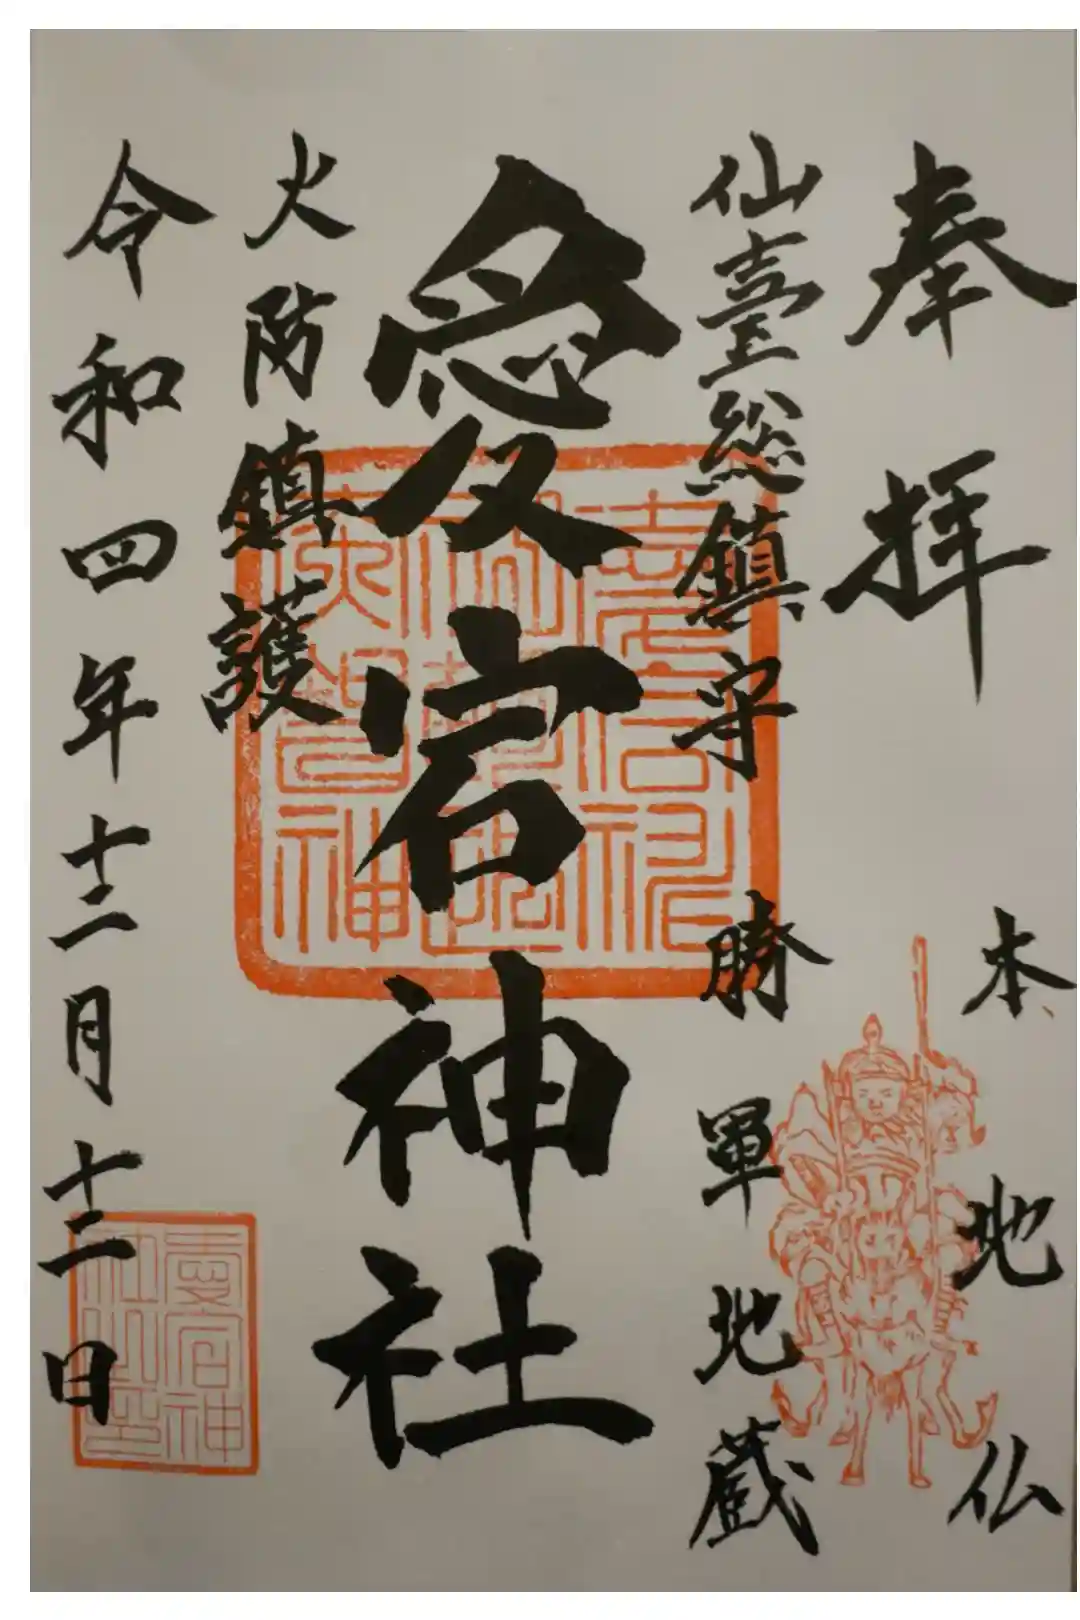 奉拝
本地仏
仙臺総鎮守
勝軍地蔵
愛宕神社
火防鎮護
令和四年十二月十二日